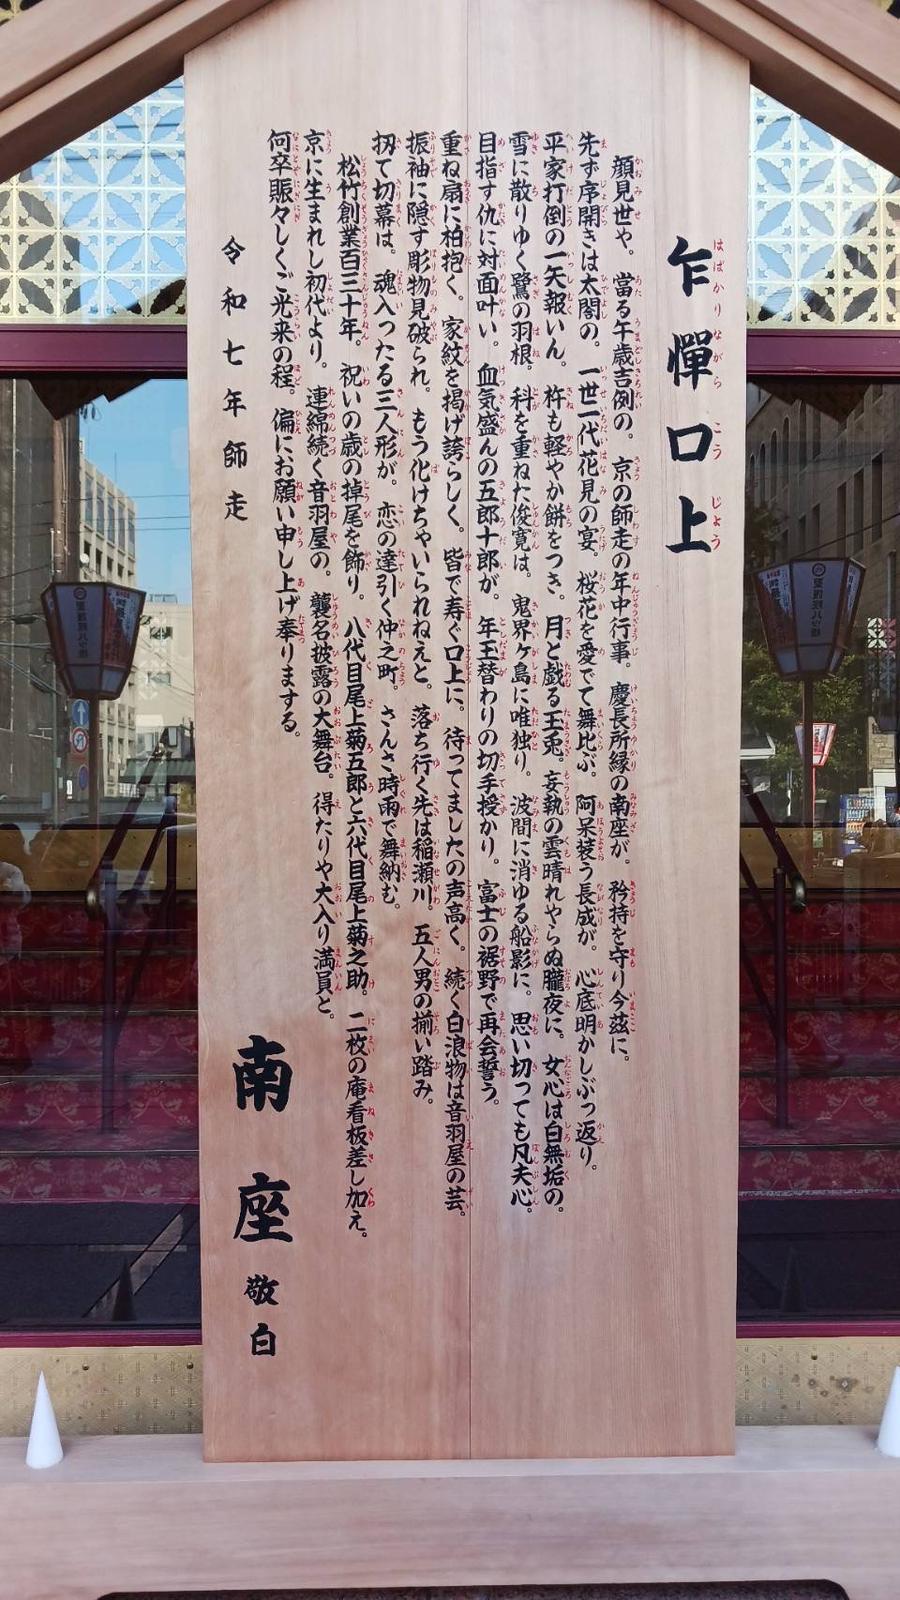 乍憚口上
顔見世や。當る午歳吉例の。京の師走の年中行事。慶長所縁の南座が。矜持を守り今茲に。
先ず序開きは太閤の。一世一代花見の宴。桜花を愛でて舞比ぶ。阿呆装う長成が。心底明かしぶっ返り。
平家打倒の一矢報いん。杵も軽やか餅をつき。月と戯る玉兎。妄執の雲晴れやらぬ朧夜に。女心は白無垢の。
雪に散りゆく鷺の羽根。科を重ねた俊寛は。鬼界ヶ島に唯独り。波間に消ゆる船影に。思い切っても凡夫心。
目指す仇に対面叶い。血気盛んの五郎十郎が。年玉替わりの切手授かり。富士の裾野で再会誓う。
重ね扇に柏抱く。家紋を掲げ誇らしく。皆で寿ぐ口上に。待ってましたの声高く。続く白浪物は音羽屋の芸。
振袖に隠す彫物見破られ。もう化けちゃいられねえと。落ち行く先は稲瀬川。五人男の揃い踏み。
扨て切幕は。魂入ったる三人形が。恋の達引く仲之町。さんさ時雨で舞納む。
松竹創業百三十年。祝いの歳の掉尾を飾り。八代目尾上菊五郎と六代目尾上菊之助。二枚の庵看板差し加え。
京に生まれし初代より。連綿続く音羽屋の。襲名披露の大舞台。得たりや大入り満員と。
何卒賑々しくご光来の程。偏にお願い申し上げ奉りまする。
令和七年師走
南座 敬白